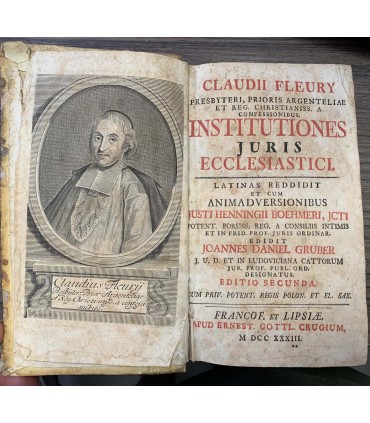 Claudius Fleury
Presbyter, Prior Argenteliae
et Reg. Christianiss. a confess
CLAUDII FLEURY
PRESBYTERI, PRIORIS ARGENTELIAE
ET REG. CHRISTIANISS. A
CONFESSIONIBUS.
INSTITUTIONES
JURIS
ECCLESIASTICI.
LATINAS REDDIDIT
ET CUM
ANIMADVERSIONIBUS
JUSTI HENNINGII BOEHMERI, JCTI
POTENT. BORUSS. REG. A CONSILIIS INTIMIS
ET IN FRID. PROF. JURIS ORDINAR.
EDIDIT
JOANNES DANIEL GRUBER
J. U. D. ET IN LUDOVICIANA CATTORUM
JUR. PROF. PUBL. ORD.
DESIGNATUS.
EDITIO SECUNDA.
CUM PRIV. POTENT. REGIS POLON. ET EL. SAX.
FRANCOF. ET LIPSIÆ.
APUD ERNEST. GOTTL. CRUGIUM,
M DCC XXXIII.